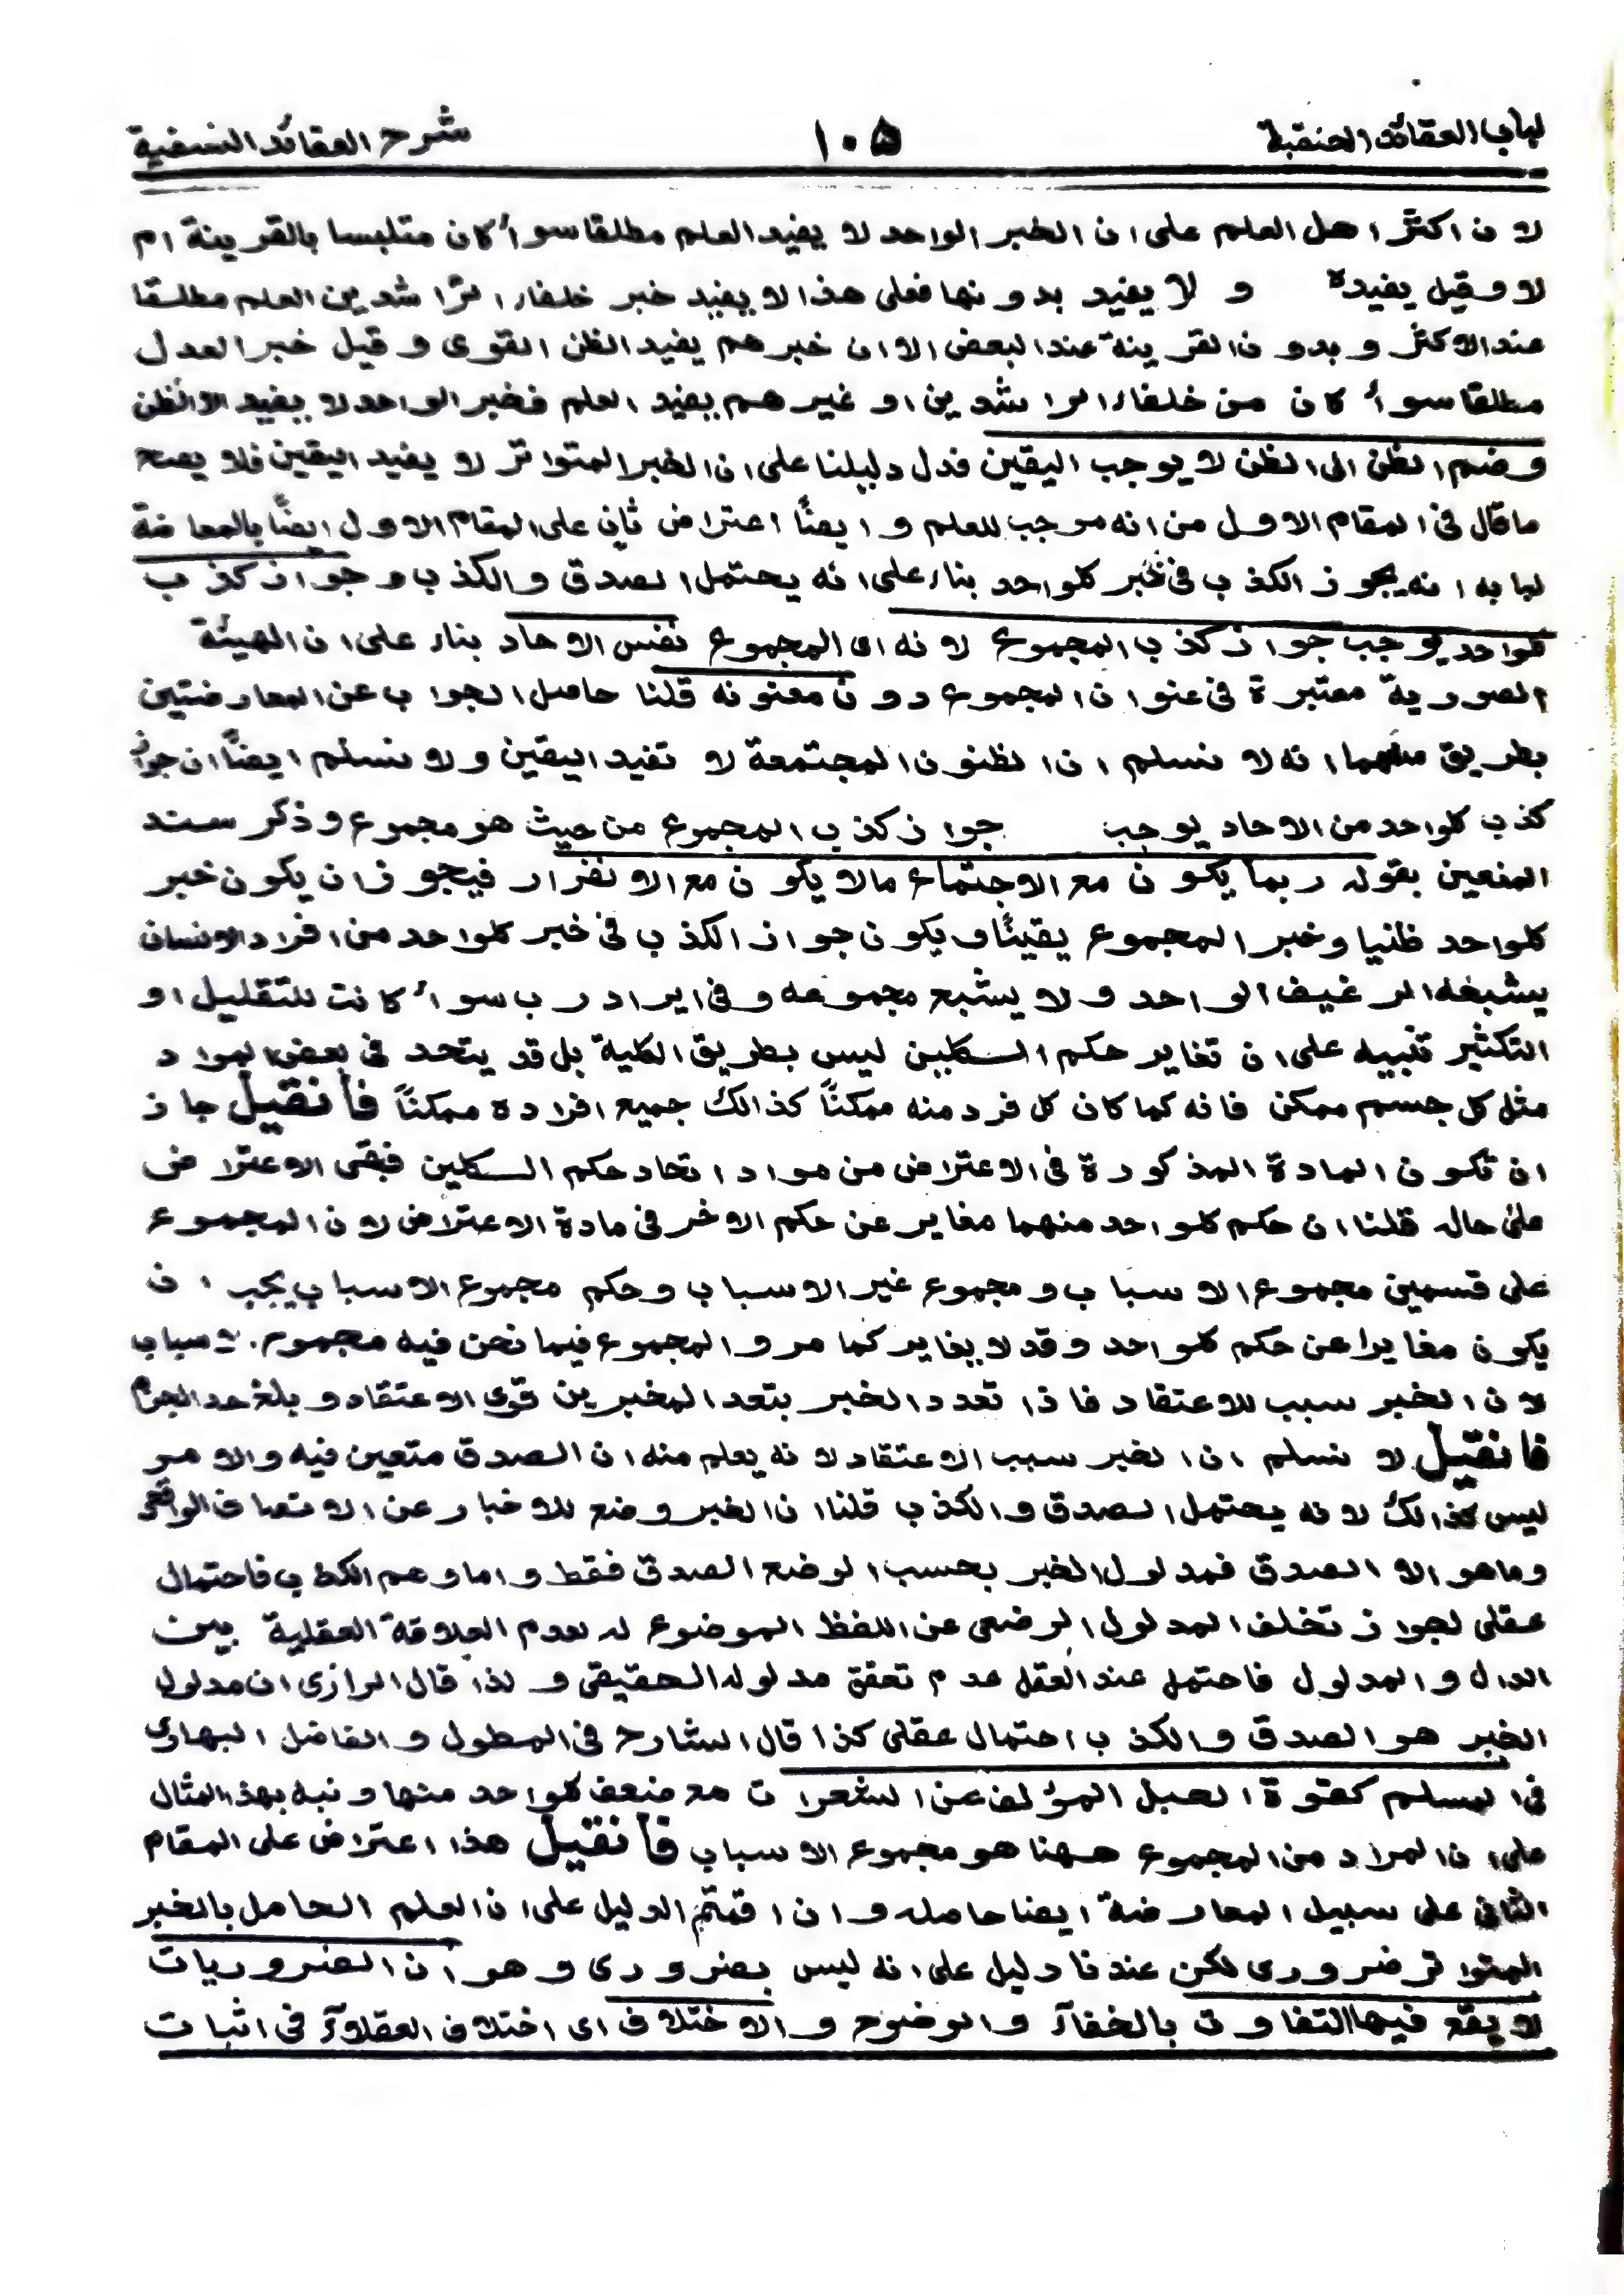 لباب العقائد الحنفية ۱۰۵ شرح العقائد النسفية
لان اكثر اهل العلم على ان الخبر الواحد لا يفيد العلم مطلقا سوأ كان متلبسا بالقرينة ام
لا وقيل يفيده و لا يفيد بدونها فعلى هذا لا يفيد خبر خلفاء الراشدين العلم مطلقا
عند الاكثر و بدون القرينة عند البعض الا ان خبرهم يفيد الظن القوى و قيل خبر العدل
مطلقا سوأ كان من خلفاء الراشدين او غيرهم يفيد العلم فخبر الواحد لا يفيد الا الظن
وضم الظن الى الظن لا يوجب اليقين فدل دليلنا على ان الخبر المتواتر لا يفيد اليقين فلا يصح
ما قال فى المقام الاول من انه موجب للعلم و ايضًا اعتراض ثانٍ على المقام الاول ايضًا بالمعارضة
انه يجوز الكذب فى خبر كلواحد بناء على انه يحتمل الصدق والكذب و جواز كذب
كلواحد يوجب جواز كذب المجموع لانه اى المجموع نفس الاحاد بناء على ان الهيئة
الصورية معتبرة فى عنوان المجموع دون معنونه قلنا حاصل الجواب عن المعارضتين
بطريق انه لا نسلم ان الظنون المجتمعة لا تفيد اليقين ولا نسلم ايضًا ان جواز
كذب كلواحد من الاحاد يوجب جواز كذب المجموع من حيث هو مجموع و ذكر سند
المنعين بقوله ربما يكون مع الاجتماع مالا يكون مع الانفراد فيجوز ان يكون خبر
كلواحد ظنيا وخبر المجموع يقينًا و يكون جواز الكذب فى خبر كلواحد من افراد الانسان
يشبعه الرغيف الواحد و لا يشبع مجموعه و فى ايراد رب سوأ كانت للتقليل او
التكثير تنبيه على ان تغاير حكم الكليين ليس بطريق الكلية بل قد يتحد فى بعض المواد
مثل كل جسم ممكن فانه كما كان كل فرد منه ممكنًا كذالك جميع افراده ممكنًا فأنقيل جاز
ان تكون المادة المذكورة فى الاعتراض من مواد اتحاد حكم الكليين فبقى الاعتراض
على حاله قلنا ان حكم كلواحد منهما مغاير عن حكم الاخر فى مادة الاعتراض لان المجموع
على قسمين مجموع الاسباب و مجموع غير الاسباب و حكم مجموع الاسباب يجب ان
يكون مغايرا عن حكم كلواحد و قد لا يغاير كما مر و المجموع فيما نحن فيه مجموع الاسباب
لان الخبر سبب للاعتقاد فاذا تعدد الخبر بتعدد المخبرين قوى الاعتقاد و بلغ حد الجزم
فانقيل لا نسلم ان الخبر سبب الاعتقاد لانه يعلم منه ان الصدق متعين فيه والامر
ليس كذالك لانه يحتمل الصدق و الكذب قلنا ان الخبر وضع للاخبار عن الاتصاف الواقعى
وما هو الا الصدق فمدلول الخبر بحسب الوضع الصدق فقط و اما وهم الكذب فاحتمال
عقلى لجواز تخلف المدلول الوضعى عن اللفظ الموضوع له لعدم العلاقة العقلية بين
الدال و المدلول فاحتمل عند العقل عدم تحقق مدلوله الحقيقى و لذا قال الرازى ان مدلول
الخبر هو الصدق و الكذب احتمال عقلى كذا قال الشارح فى المطول و الفاضل البهارى
فى المسلم كقوة الحبل المؤلف عن الشعرات مع ضعف كلواحد منها و نبه بهذا المثال
على ان المراد من المجموع ههنا هو مجموع الاسباب فأنقيل هذا اعتراض على المقام
الثانى على سبيل المعارضة ايضا حاصله و ان اقمتم الدليل على ان العلم الحاصل بالخبر
المتواتر ضرورى لكن عندنا دليل على انه ليس بضرورى و هو ان الضروريات
لا يقع فيها التفاوت بالخفأ و الوضوح و الاختلاف اى اختلاف العقلاء فى اثبات